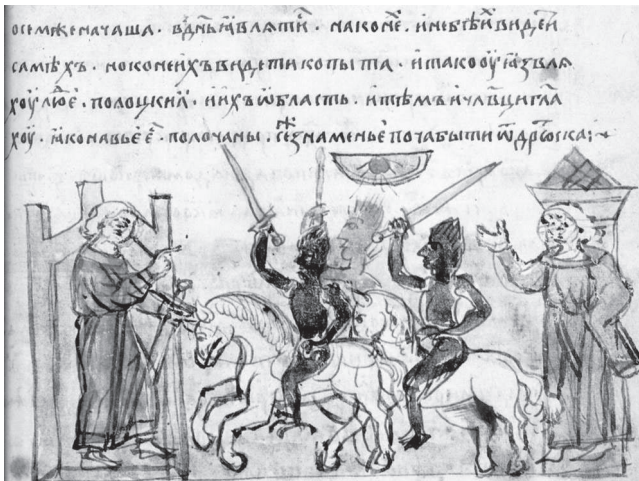 осемже начаша · въ дн҃ь ꙗвлѧти · на коне · и не бѣ и видѣти
самѣхъ · но конеи ихъ видети копыта · и тако оуꙗзвлѧ
хоу люⷣе · полоцкиꙗ · и ихъ ѡбласть · и тѣмъ и чл҃вци гл҃а
хоу · ꙗко навье · полочаны · се знаменье поча быти ѿ дрютска ;